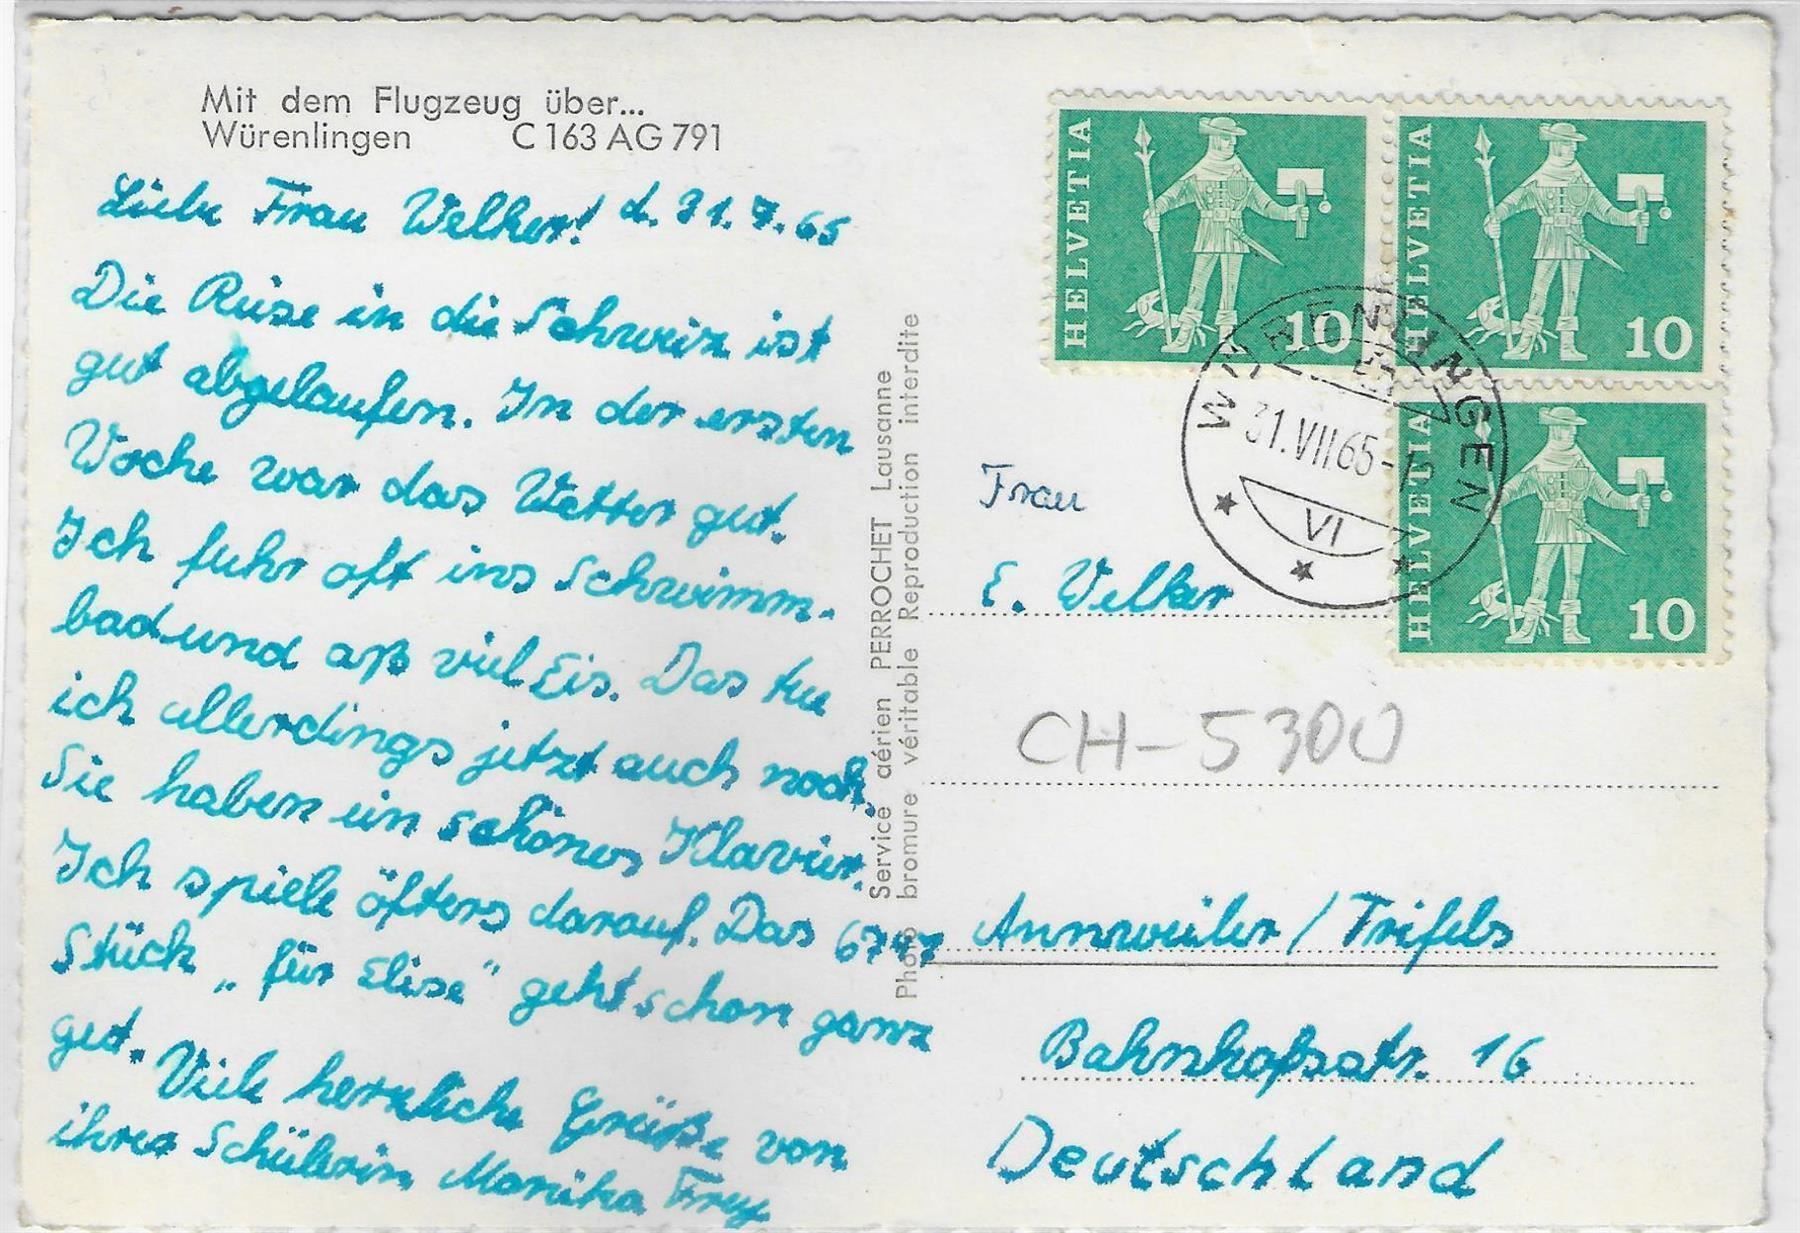 Mit dem Flugzeug über...
Würenlingen C 163 AG 791
Liebe Frau Welker! d. 31.7.65
Die Reise in die Schweiz ist
gut abgelaufen. In der ersten
Woche war das Wetter gut.
Ich fuhr oft ins Schwimm-
bad und aß viel Eis. Das tue
ich allerdings jetzt auch noch.
Sie haben ein schönes Klavier.
Ich spiele öfters darauf. Das
Stück „für Elise" geht schon ganz
gut. Viele herzliche Grüße von
ihrer Schülerin Monika Frey
Service aérien PERROCHET Lausanne
Photo bromure véritable Reproduction interdite
HELVETIA 10
HELVETIA 10
HELVETIA 10
WÜRENLINGEN
31.VII.65
VI
Frau
E. Welker
CH-5300
6747 Annweiler / Trifels
Bahnhofsstr. 16
Deutschland